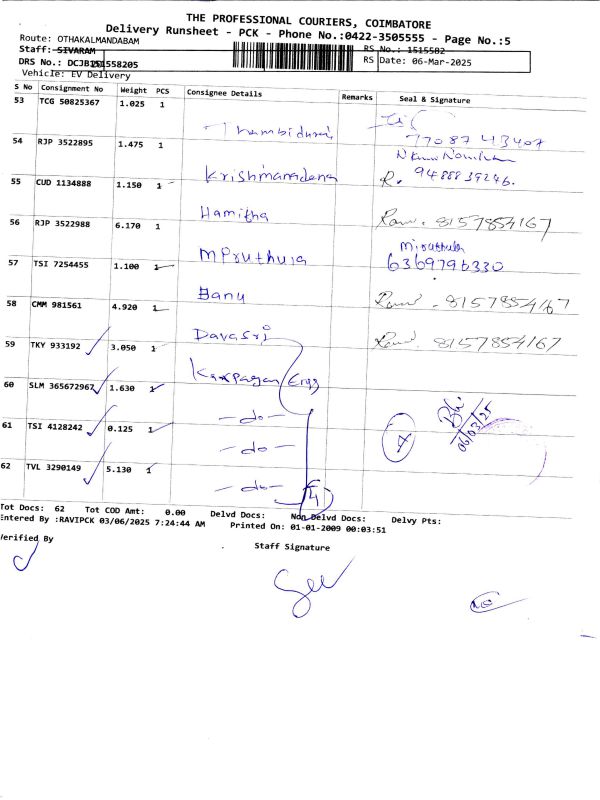 THE PROFESSIONAL COURIERS, COIMBATORE
Delivery Runsheet - PCK - Phone No.:0422-3505555 - Page No.:5
Route: OTHAKALMANDABAM
Staff: SIVARAM RS No.: 1515582
DRS No.: DCJB151558205 RS Date: 06-Mar-2025
Vehicle: EV Delivery
S No Consignment No Weight PCS Consignee Details Remarks Seal & Signature
53 TCG 50825367 1.025 1 Thambidurai 7708743407
54 RJP 3522895 1.475 1 Krishmaradana R. 9488839246.
55 CUD 1134888 1.150 1 Hamitha 8157854167
56 RJP 3522988 6.170 1 MPruthuia 6369796330
57 TSI 7254455 1.100 1 Banu 8157854167
58 CMM 981561 4.920 1 Davasri 8157854167
59 TKY 933192 3.050 1 Karpagam Engg
60 SLM 365672967 1.630 1 - do -
61 TSI 4128242 0.125 1 - do - 4 06/03/25
62 TVL 3290149 5.130 1 - do - 4
Tot Docs: 62 Tot COD Amt: 0.00 Delvd Docs: Non Delvd Docs: Delvy Pts:
Entered By :RAVIPCK 03/06/2025 7:24:44 AM Printed On: 01-01-2009 00:03:51
Verified By
Staff Signature